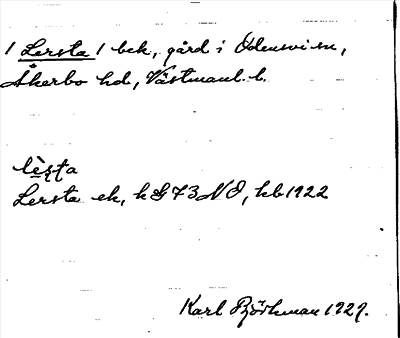 1 Lersta / bek, gård i Odensvi sn,
Åkerbo hd, Västmanl. l.
lèṣṭa
Lersta ek, k G 73 NO, kb 1922
Karl Björkman 1929.